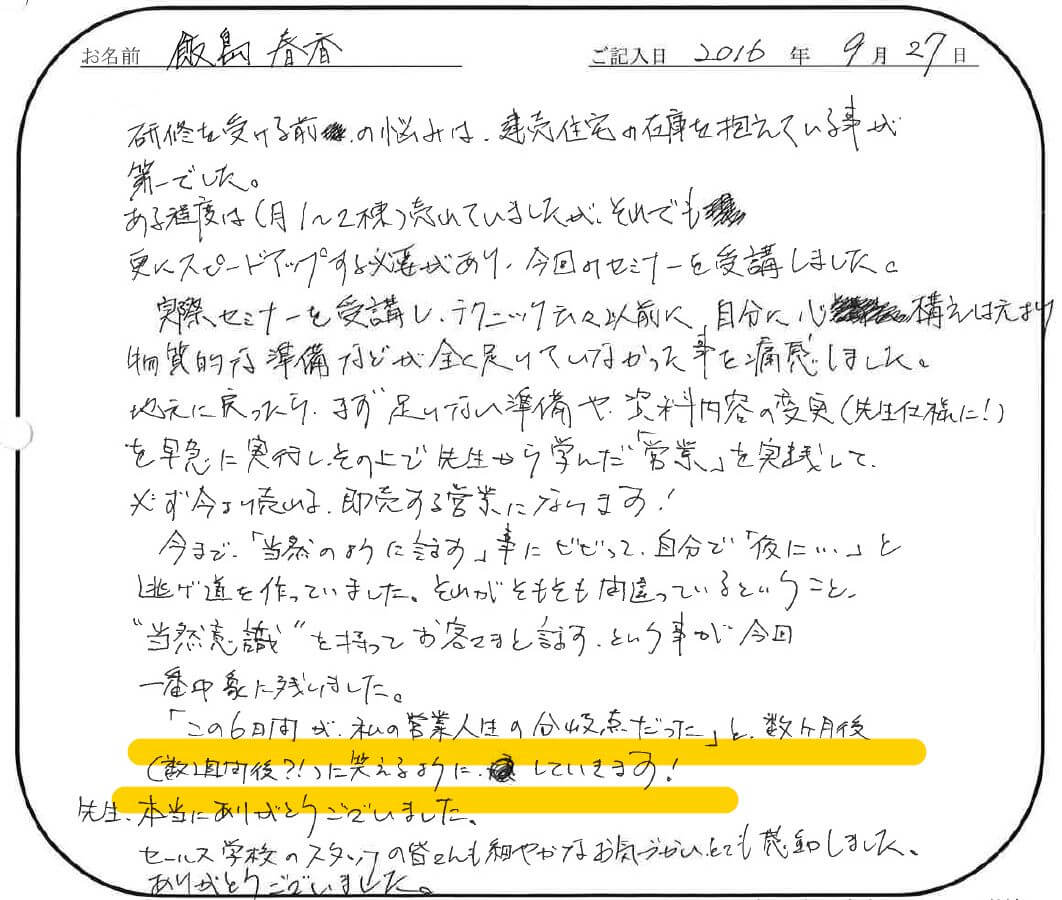 お名前 飯島 春香 ご記入日 2016 年 9 月 27 日
研修を受ける前の悩みは、建売住宅の在庫を抱えている事が
第一でした。
ある程度は(月1~2棟)売れていましたが、それでも
更にスピードアップする必要があり、今回のセミナーを受講しました。
実際、セミナーを受講し、テクニック云々以前に、自分に心構えは元より
物質的な準備などが全く足りていなかった事を痛感しました。
地元に戻ったら、まず足りない準備や、資料内容の変更(先生仕様に!)
を早急に実行し、その上で先生から学んだ「営業」を実践して、
必ず今より売れる、即売する営業になります!
今まで、「当然のように話す」事にビビって、自分で「仮に…」と
逃げ道を作っていました。それがそもそも間違っているということ、
“当然意識”を持ってお客さまと話す、という事が今回
一番印象に残りました。
「この6日間が、私の営業人生の分岐点だった」と、数ヶ月後
(数週間後?!)に笑えるように、していきます!
先生、本当にありがとうございました。
セールス学校のスタッフの皆さんも細やかなお気づかい、とても感動しました。
ありがとうございました。